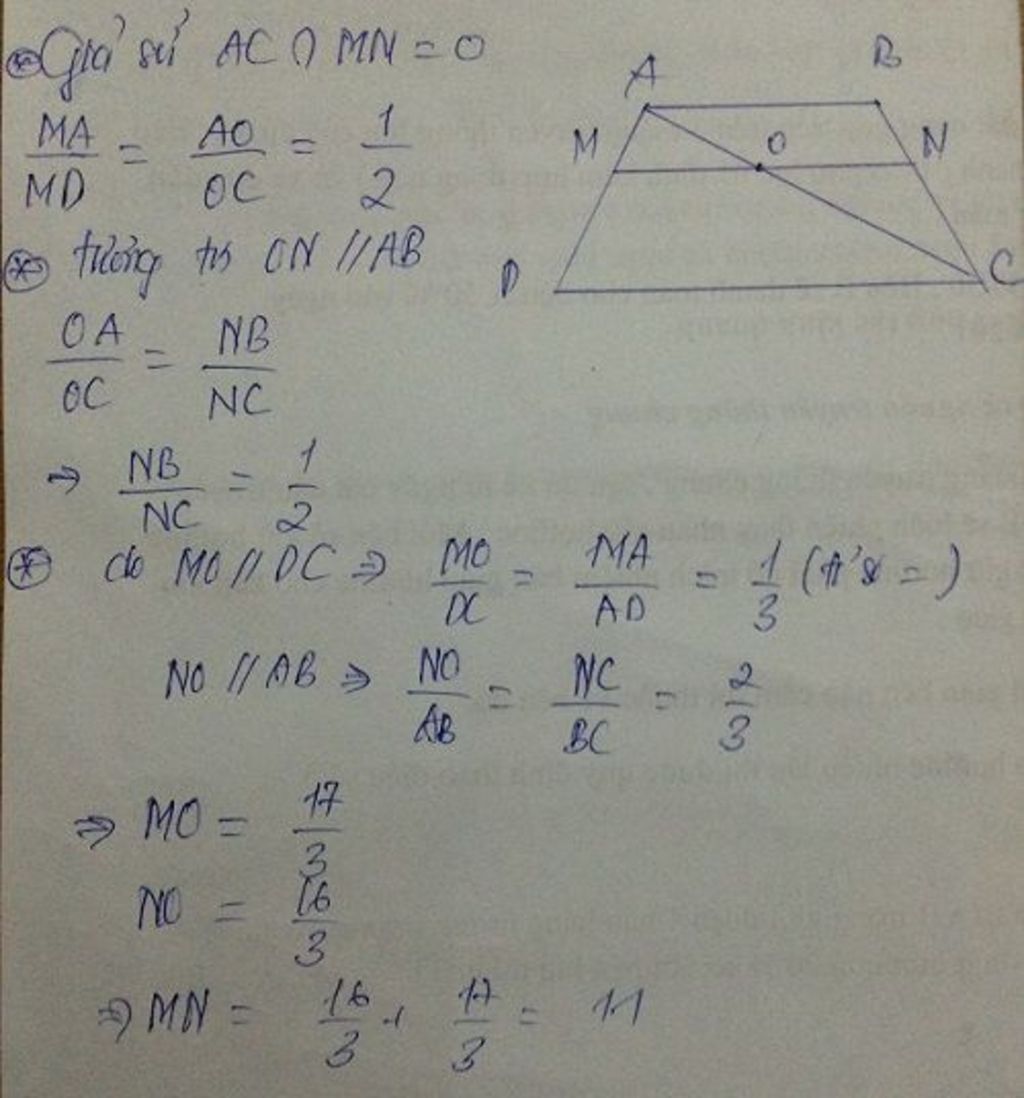 ⊛ Giả sử AC ∩ MN = O
MA/MD = AO/OC = 1/2
⊛ tương tự ON // AB
OA/OC = NB/NC
⇒ NB/NC = 1/2
⊛ do MO // DC ⇒ MO/DC = MA/AD = 1/3
NO // AB ⇒ NO/AB = NC/BC = 2/3
⇒ MO = 17/3
NO = 16/3
⇒ MN = 16/3 + 17/3 = 11
A
B
M
O
N
D
C